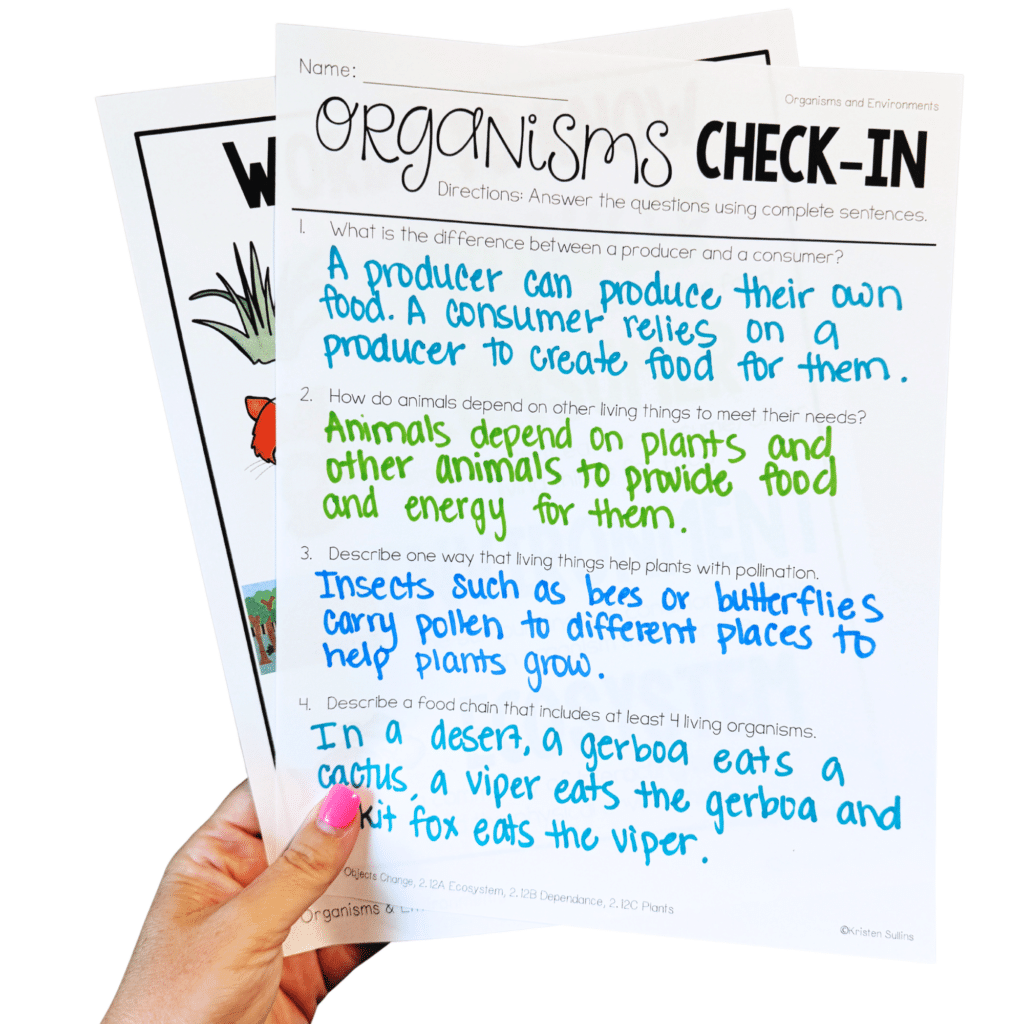 Name:
Organisms and Environments
ORGANISMS CHECK-IN
Directions: Answer the questions using complete sentences.
1. What is the difference between a producer and a consumer?
A producer can produce their own
food. A consumer relies on a
producer to create food for them.
2. How do animals depend on other living things to meet their needs?
Animals depend on plants and
other animals to provide food
and energy for them.
3. Describe one way that living things help plants with pollination.
Insects such as bees or butterflies
carry pollen to different places to
help plants grow.
4. Describe a food chain that includes at least 4 living organisms.
In a desert, a gerboa eats a
cactus, a viper eats the gerboa and
kit fox eats the viper.
Objects Change, 2.12A Ecosystem, 2.12B Dependance, 2.12C Plants
©Kristen Sullins
W
Organisms &